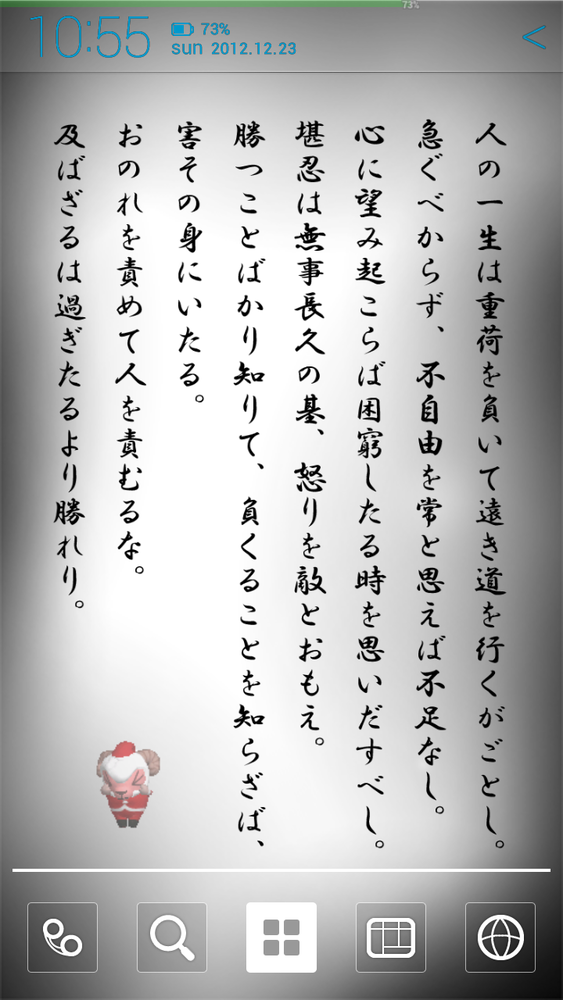 73%
10:55
73%
sun 2012.12.23
人の一生は重荷を負いて遠き道を行くがごとし。
急ぐべからず、不自由を常と思えば不足なし。
心に望み起こらば困窮したる時を思いだすべし。
堪忍は無事長久の基、怒りを敵とおもえ。
勝つことばかり知りて、負くることを知らざば、
害その身にいたる。
おのれを責めて人を責むるな。
及ばざるは過ぎたるより勝れり。